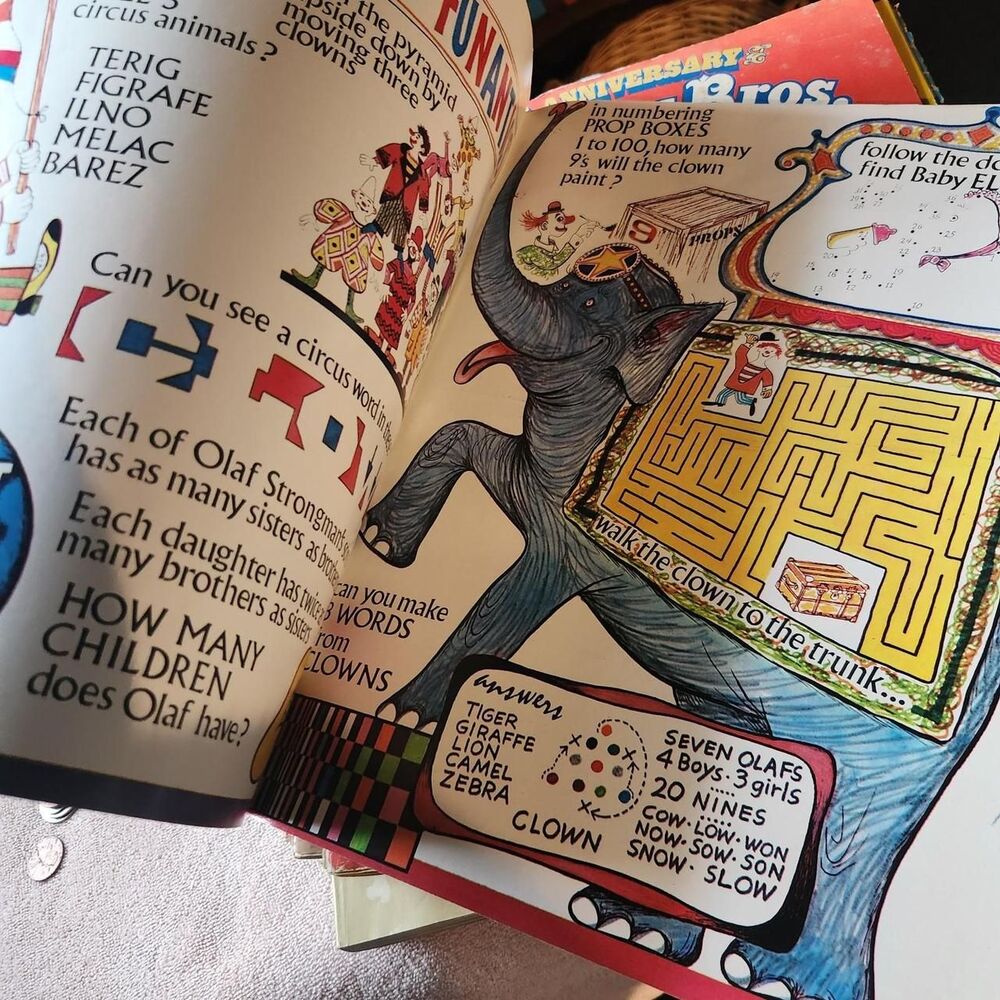 circus animals?
TERIG
FIGRAFE
ILNO
MELAC
BAREZ
the pyramid
upside down by
moving three
clowns
FUN AN
Can you see a circus word in
Each of Olaf Strongman's
has as many sisters as
Each daughter has twice
many brothers as sisters
HOW MANY
CHILDREN
does Olaf have?
ANNIVERSARY
Bros.
in numbering
PROP BOXES
1 to 100, how many
9's will the clown
paint?
9 PROPS
follow the
find Baby EL
walk the clown to the trunk...
can you make
8 WORDS
from
CLOWNS
answers
TIGER
GIRAFFE
LION
CAMEL
ZEBRA
CLOWN
SEVEN OLAFS
4 Boys. 3 girls
20 NINES
COW. LOW. WON
NOW. SOW. SON
SNOW. SLOW